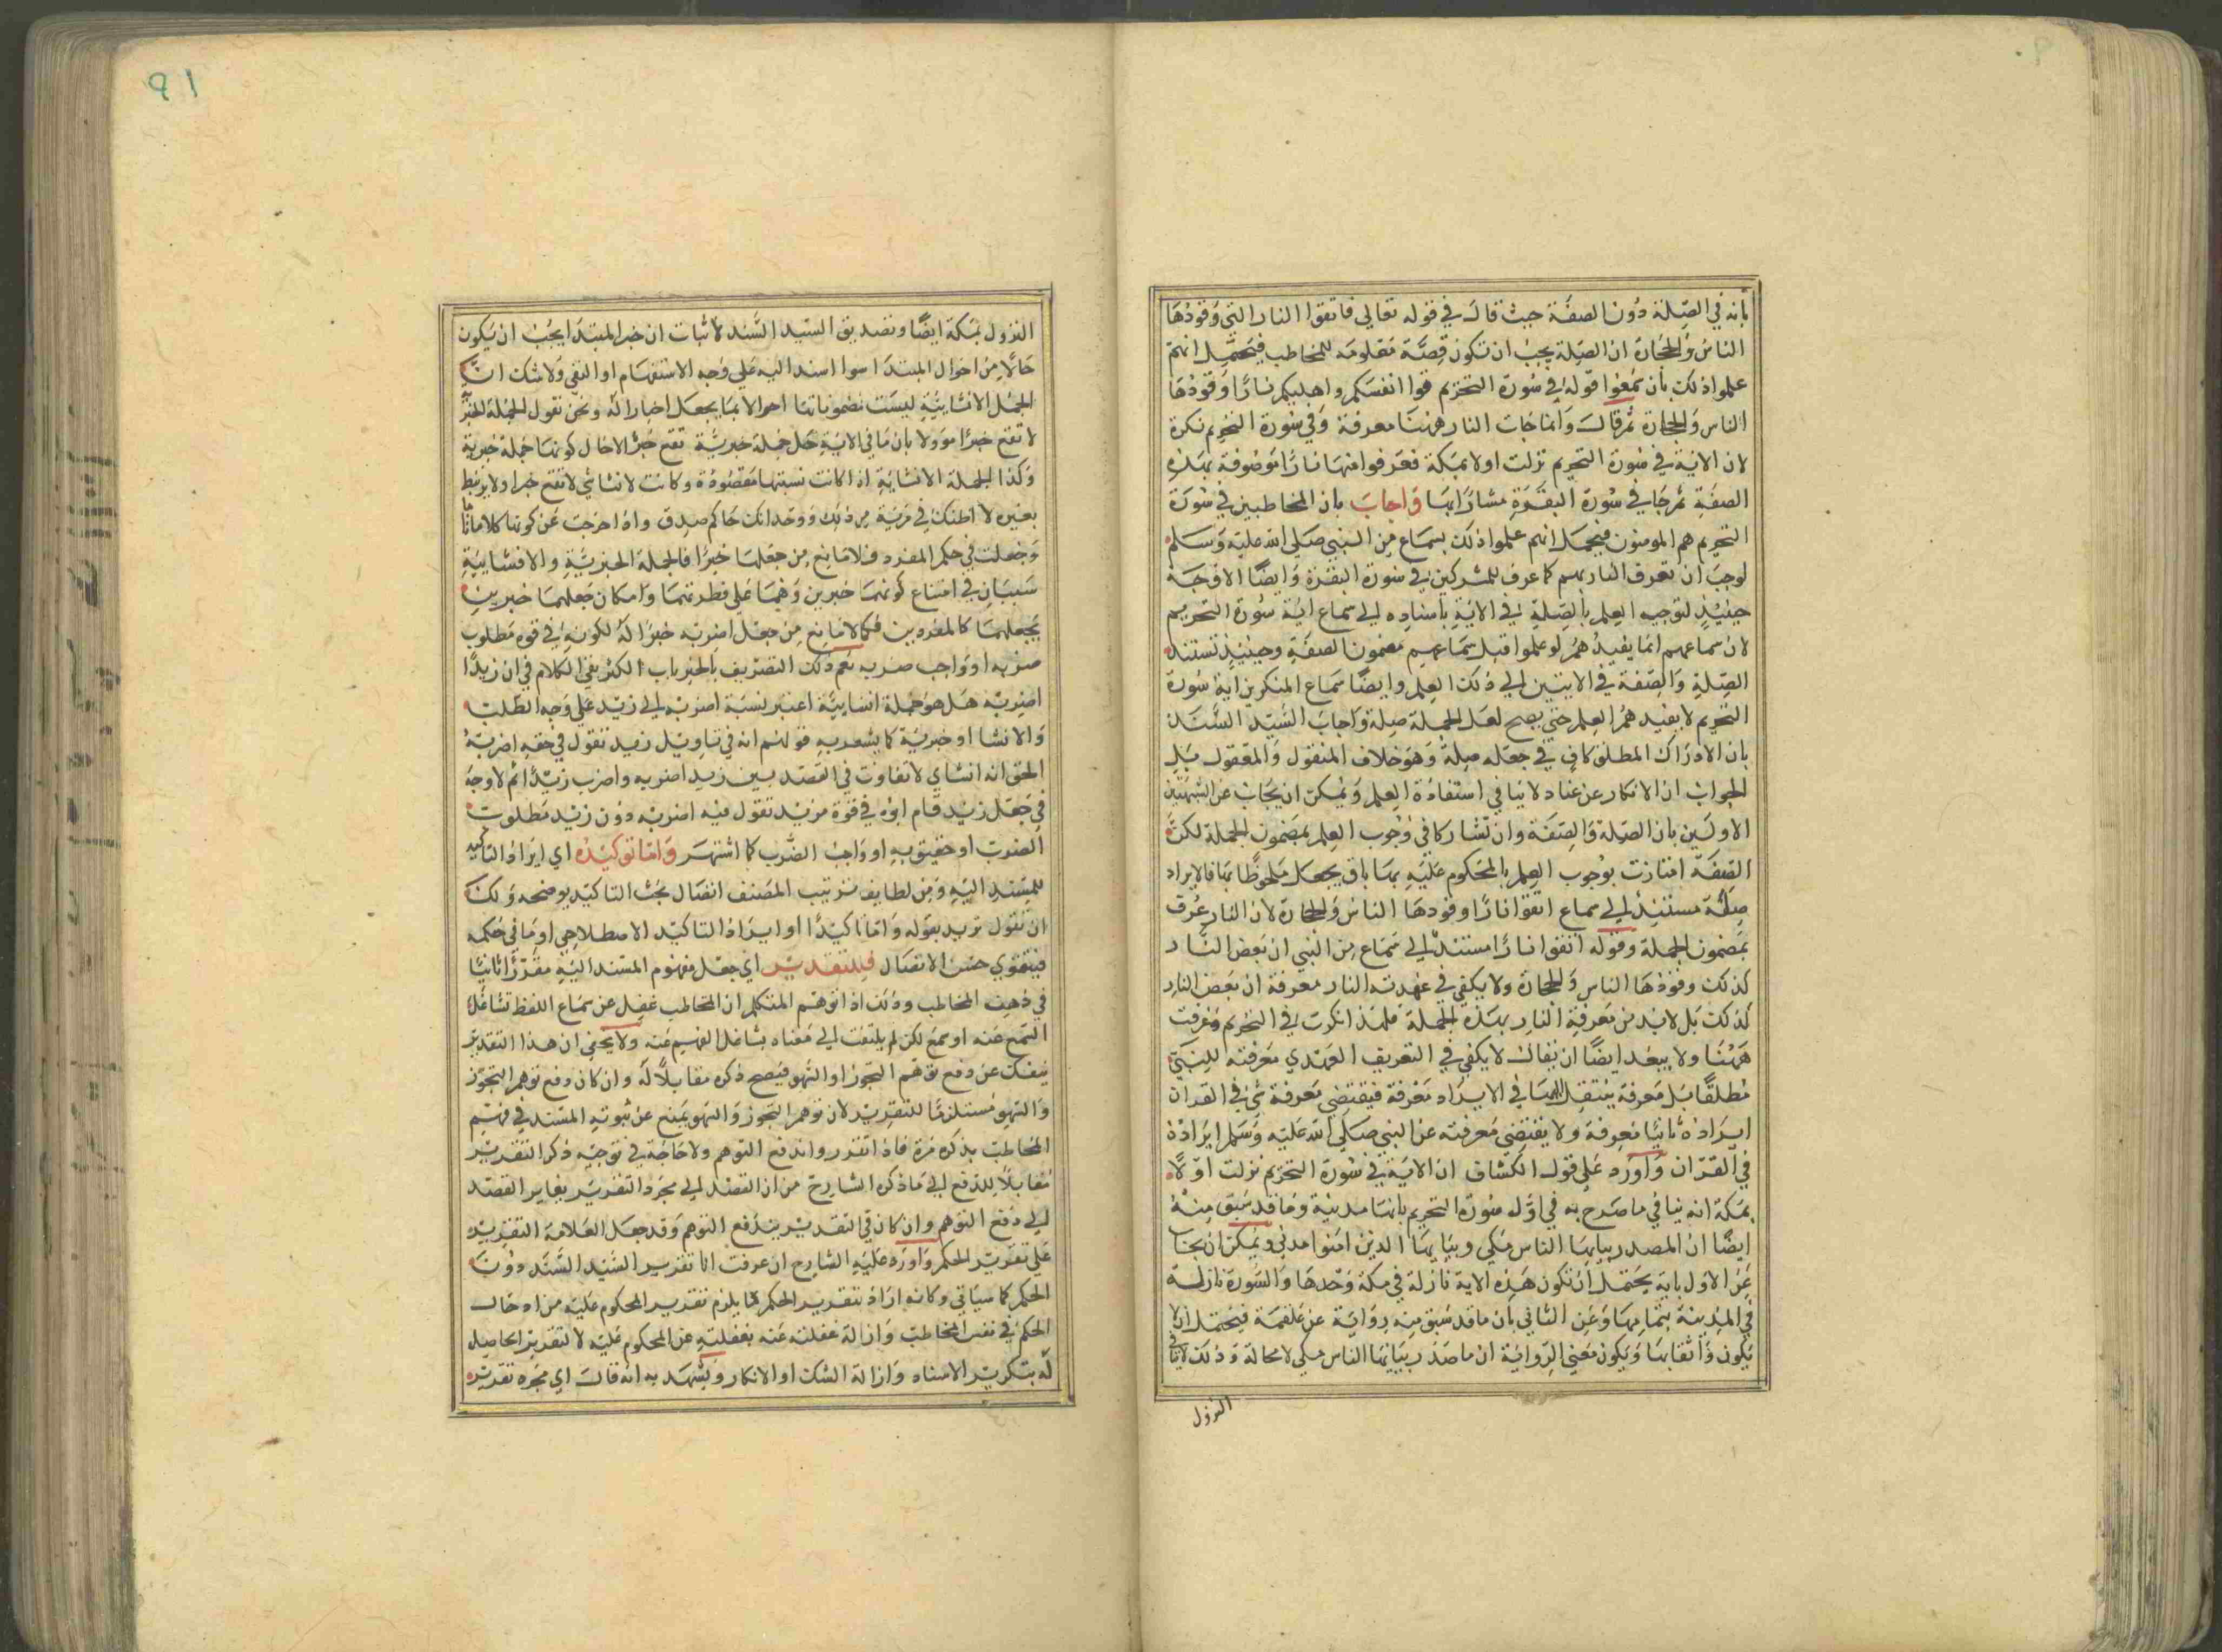 بأنه في الصلة دون الصفة حيث قال في قوله تعالى فاتقوا النار التي وقودها
الناس والحجارة ان الصلة يجب ان تكون قصة معلومة للمخاطب فيحتمل انهم
علموا ذلك بأن سمعوا قوله في سورة التحريم قوا انفسكم واهليكم نارا وقودها
الناس والحجارة ثم قال وانما جات النار ههنا معرفة وفي سورة التحريم نكرة
لان الاية في سورة التحريم نزلت اولا بمكة فعرفوا منها نارا موصوفة بهذه
الصفة ثم جا في سورة البقرة مشارا بها واجاب بان المخاطبين في سورة
التحريم هم المومنون فيحمل انهم علموا ذلك بسماع من النبي صلى الله عليه وسلم
لوجب ان تعرف النار بهم كما عرف للمشركين في سورة البقرة وايضا الاوجه
حينئذ لتوجيه العلم بالصلة في الاية باسناده الي سماع اية سورة التحريم
لان سماعهم انما يفيدهم لو علموا قبل سماعهم مضمون الصفة وحينئذ تستند
الصلة والصفة في الايتين الي ذلك العلم وايضا سماع المنكرين اية سورة
التحريم لا يفيدهم العلم حتى يصح لعل الجملة صلة واجاب السيد السند
بان الادراك المطلق كاف في جعله صلة وهو خلاف المنقول والمعقول بل
الجواب ان الانكار عن عناد لا ينافي استفادة العلم ويمكن ان يجاب عن الشبهتين
الاوليين بان الصلة والصفة وان تشاركا في وجوب العلم بمضمون الجملة لكن
الصفة امتازت بوجوب العلم بالمحكوم عليه بها باق يجعل ملحوظا بها فالايراد
صلة مستند الي سماع اتقوا نارا وقودها الناس والحجارة لان النار عرف
بمضمون الجملة وقوله اتقوا نارا مستند الي سماع من النبي ان بعض النار
كذلك وقودها الناس والحجارة ولا يكفي في عهدته النار معرفة ان بعض النار
كذلك بل لابد من معرفة النار بهذه الجملة فلهذا نكرت في التحريم وعرفت
ههنا ولا يبعد ايضا ان يقال لا يكفي في التعريف العهدي معرفته للنبي
مطلقا بل معرفة ينتقل اليها في الايراد معرفة فيقتضي معرفة شي في القران
ايراده ثانيا معرفة ولا يقتضي معرفته عن النبي صلى الله عليه وسلم ايراده
في القران واورد على قول الكشاف ان الاية في سورة التحريم نزلت اولا
بمكة انه ينافي ما صرح به في اول سورة التحريم بانها مدنية وما قد سبق منه
ايضا ان المصدر بيا يها الناس مكي وبيا يها الذين امنوا مدني ويمكن ان يجاب
عن الاول بانه يحتمل ان تكون هذه الاية نازلة في مكة وحدها والسورة نازلة
في المدينة بتمامها وعن الثاني بان ما قد سبق منه رواية عن علقمة فيحتمل ان لا
يكون واثقا بها ويكون معنى الرواية ان ما صدر بيا يها الناس مكي لا محالة وذلك لا ينافي
النزول
91
النزول بمكة ايضا وتصديق السيد السند لاثبات ان خبر المبتدا يجب ان يكون
حالا من احوال المبتدا سوا اسند اليه على وجه الاستفهام او النفي ولا شك ان
الجمل الانشائية ليست مضموناتها احوالا بما يجعل اخبارا له ونحن نقول الجملة الخبرية
لا تقع خبرا موولا بان ما في الاية حل جملة خبرية تقع خبرا الا حال كونها جملة خبرية
وكذا الجملة الانشائية اذا كانت نسبتها مقصودة وكانت لانشائي لا تقع خبرا ولا يرتبط
بغيره لا اظنك في مرية من ذلك ووحدانك حاكم صدق واذا خرجت عن كونها كلاما تاما
وجعلت في حكم المفرد فلا مانع من جعلها خبرا فالجملة الخبرية والانشائية
سيان في امتناع كونهما خبرين وهما على فطرتهما وامكان جعلهما خبرين
بجعلهما كالمفردين فكما لا مانع من جعل اضربه خبرا له لكونه في قوة مطلوب
ضربه او واجب ضربه نعم ذلك التصريف بالخبر باب الكثر بقي الكلام في ان زيدا
اضربه هل هو جملة انشائية اعتبر نسبة اضرب الي زيد على وجه الطلب
والانشا او خبرية كما يشعر به قولهم انه في تاويل زيد تقول في حقه اضربه
الحق انه انشاي لا تفاوت في القصد بين زيد اضربه واضرب زيدا ثم لا وجه
في جعل زيد قام ابوه في قوة مزيد تقول فيه اضربه دون زيد مطلوب
الضرب او حقيق به او واجب الضرب كما اشتهر واما توكيده اي ايراد التاكيد
للمسند اليه ومن لطايف ترتيب المصنف اتصال بحث التاكيد بوضحه ولك
ان تقول تريد بقوله واما تاكيدا او ايراد التاكيد الاصطلاحي او ما في حكمه
فيتقوي حسن الاتصال فللتقدير اي جعل مفهوم المسند اليه مقررا ثانيا
في ذهن المخاطب وذلك اذا توهم المتكلم ان المخاطب غفل عن سماع اللفظ تشاغل
السمع عنه او سمع لكن لم يلتفت الي معناه بشاغل الفهم عنه ولا يخفى ان هذا التقدير
ينفك عن دفع توهم التجوز او السهو فيصح ذكره مقابلا له وان كان دفع توهم التجوز
والسهو مستلزما للتقرير لان توهم التجوز والسهو يمنع عن ثبوت المسند في فهم
المخاطب بذكره مرة فاذا تقرر واندفع التوهم ولا حاجة في توجيه ذكر التقدير
مقابلا للدفع الي ما ذكره الشارح من ان القصد الي مجرد التقرير يغاير القصد
الي دفع التوهم وان كان في التقدير يندفع التوهم وقد جعل العلامة التقرير
على تقرير الحكم واورد عليه الشارح ان عرفت انا تقرير السيد السند دون
الحكم كما سياتي وكانه اراد بتقرير الحكم ما يلزم تقرير المحكوم عليه من ادخال
الحكم في نفس المخاطب وازالة غفلته عنه بغفلته عن المحكوم عليه لا تقرير الحاصل
له بتكرير الاسناد وازالة الشك او الانكار ويشهد به انه قال اي مجرد تقرير